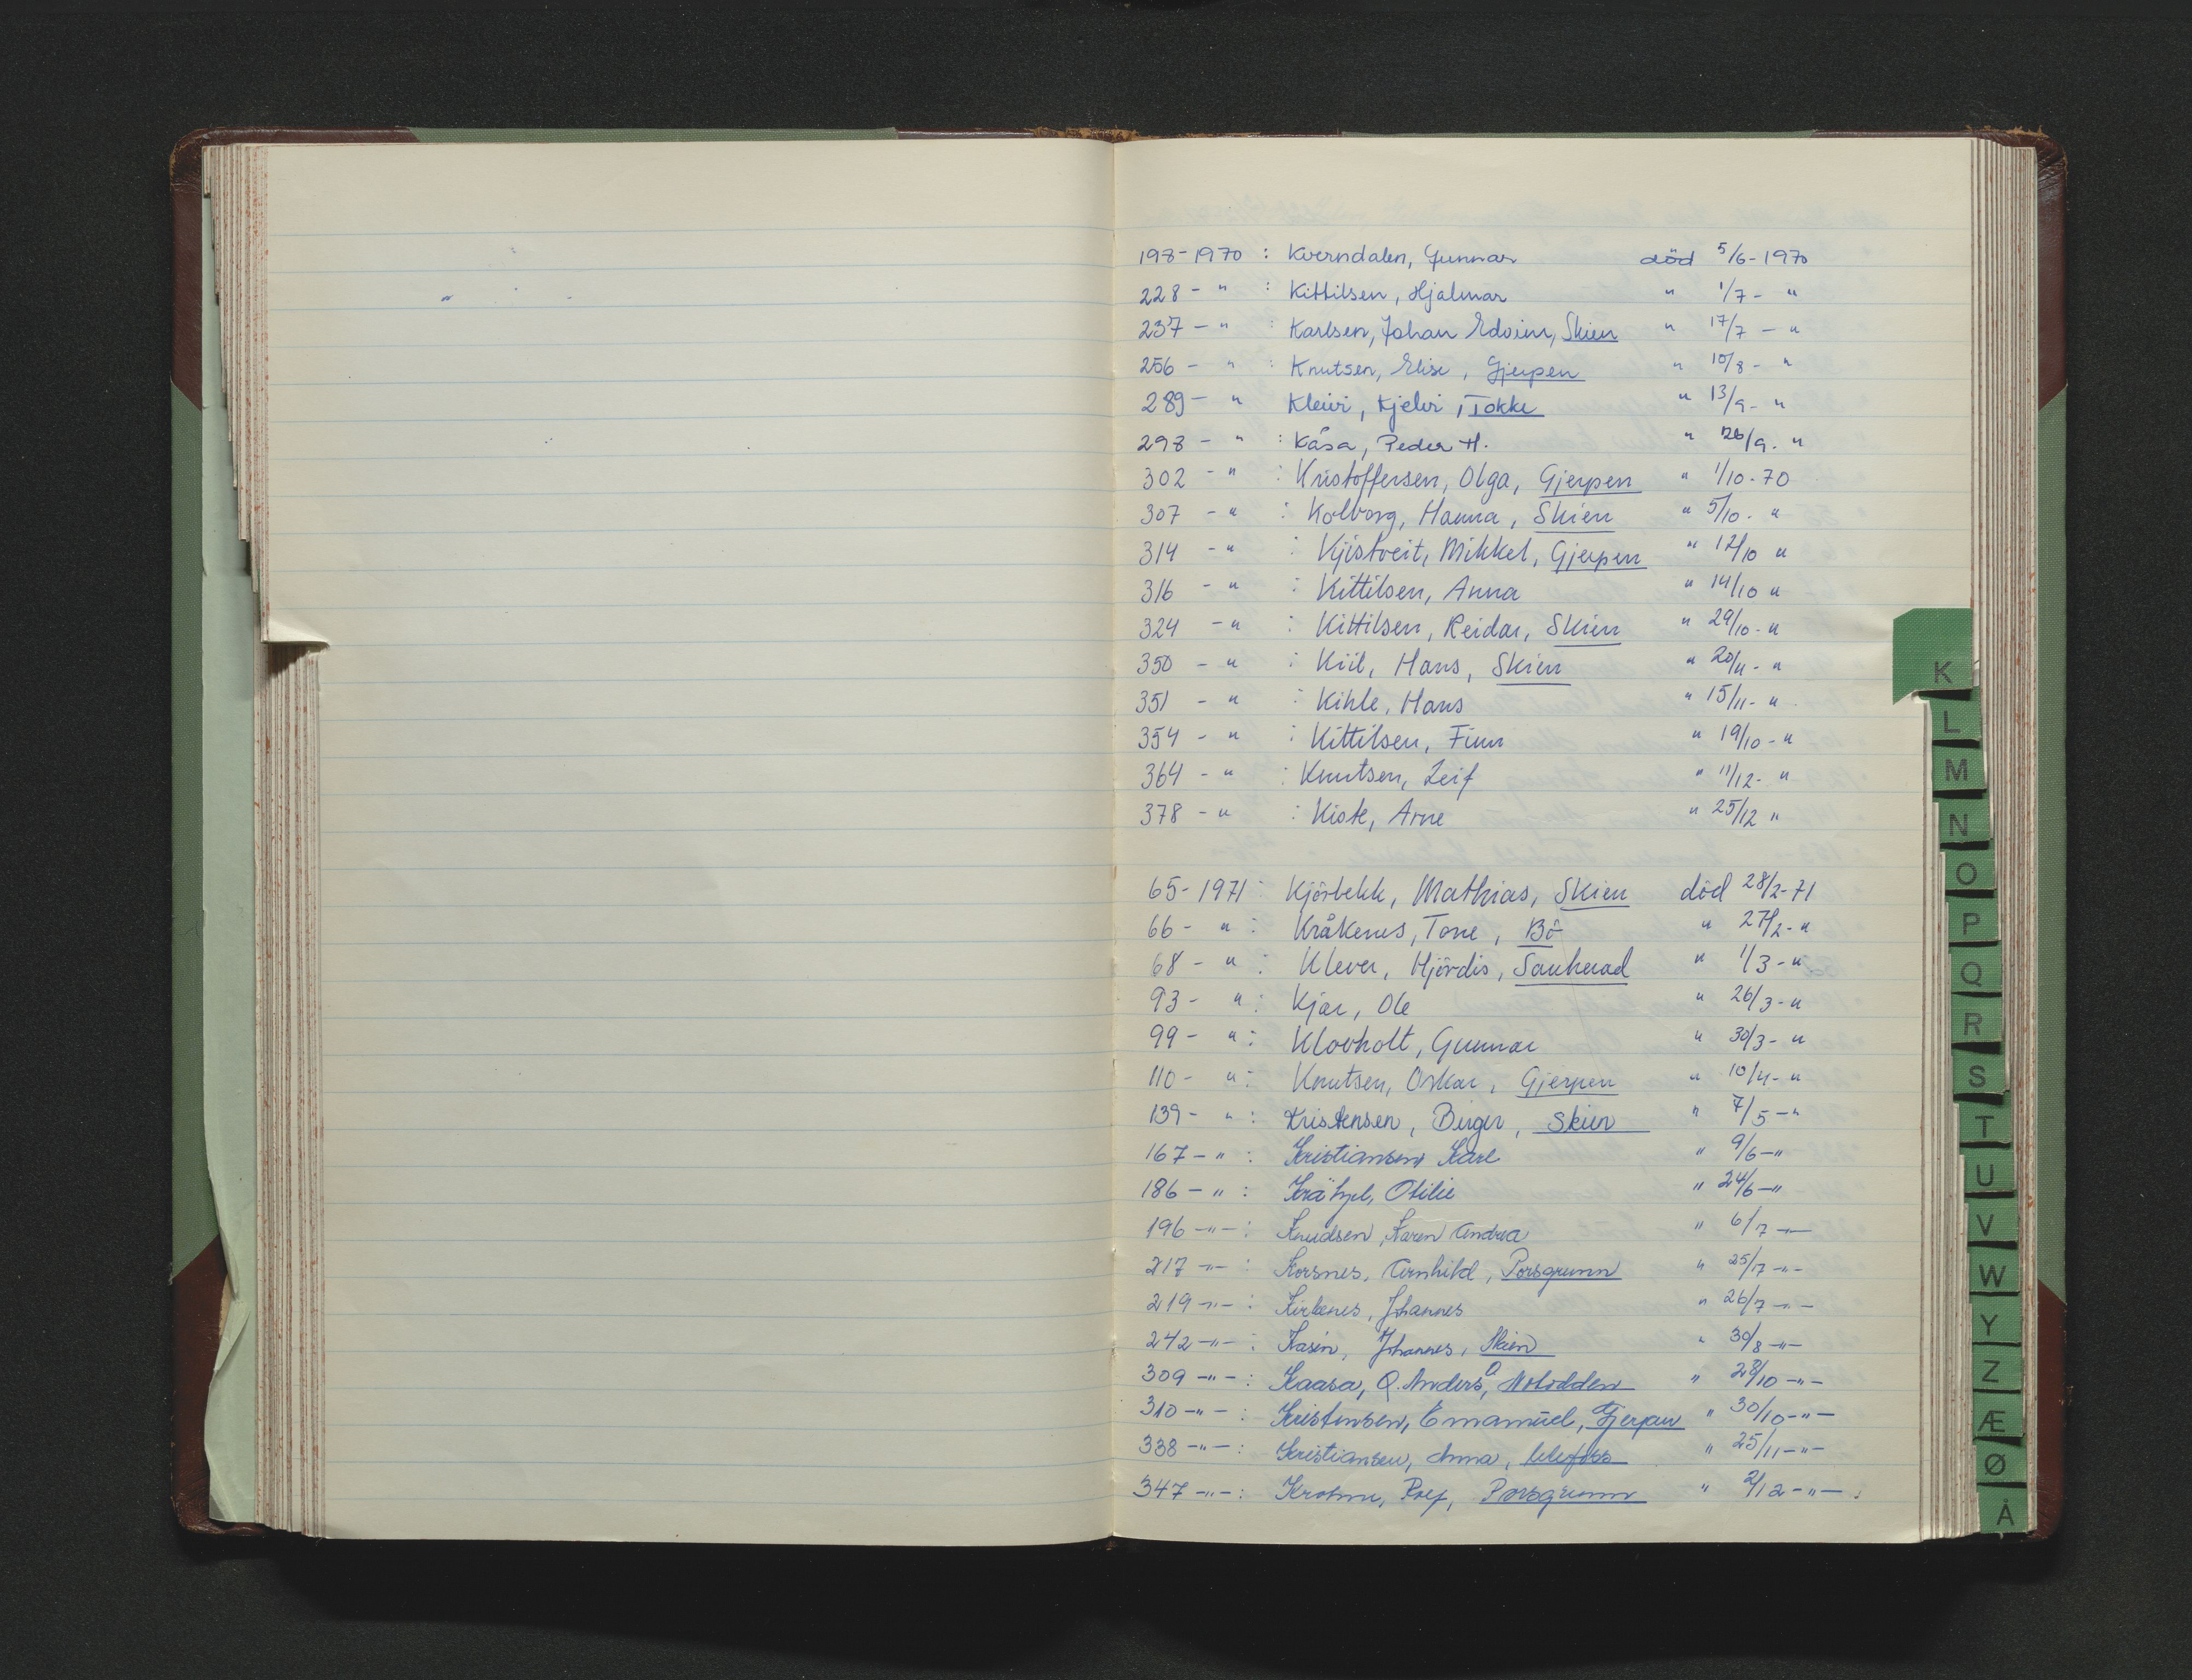 198-1970 : Kverndalen, Gunnar død 5/6-1970
228 - " : Kittilsen, Hjalmar " 1/7 - "
237 - " : Karlsen, Johan Edvin, Skien " 17/7 - "
256 - " : Knutsen, Elise, Gjerpen " 10/8 - "
289 - " Kleivi, Kjelvi, Tokke " 13/9 - "
298 - " : Kåsa, Peder H. " 26/9 - "
302 - " : Kristoffersen, Olga, Gjerpen " 1/10-70
307 - " : Kolborg, Hanna, Skien " 5/10 - "
314 - " : Kjistveit, Mikkel, Gjerpen " 12/10 "
316 - " : Kittilsen, Anna " 14/10 "
324 - " : Kittilsen, Reidar, Skien " 29/10 - "
350 - " : Kiil, Hans, Skien " 20/11 - "
351 - " : Kihle, Hans " 15/11 - "
354 - " : Kittilsen, Finn " 19/10 - "
364 - " : Knutsen, Leif " 11/12 - "
378 - " : Kiste, Arne " 25/12 "
65-1971 : Kjörbekk, Mathias, Skien død 28/2-71
66 - " : Kråkenes, Tone, Bö " 27/2 - "
68 - " : Klever, Hjördis, Sauherad " 1/3 - "
93 - " : Kjær, Ole " 26/3 - "
99 - " : Klovholt, Gunnar " 30/3 - "
110 - " : Knutsen, Oskar, Gjerpen " 10/4 - "
139 - " : Kristensen, Birger, Skien " 7/5 - "
167 - " : Kristiansen, Karl " 9/6 - "
186 - " : Krätzel, Otilie " 24/6 - "
196 - " - : Knudsen, Karen Andrea " 6/7 - " -
217 - " - : Korsnes, Arnhild, Porsgrunn " 25/7 - " -
219 - " - : Kirkenes, Johannes " 26/7 - " -
242 - " - : Kasin, Johannes, Skien " 30/8 - " -
309 - " - : Kaasa, O. Anders, Notodden " 28/10 - " -
310 - " - : Kristensen, Emanuel, Gjerpen " 30/10 - " -
338 - " - : Kristiansen, Anna, Ulefoss " 25/11 - " -
347 - " - : Krohn, Rolf, Porsgrunn " 2/12 - " -
K
L
M
N
O
P
Q
R
S
T
U
V
W
Y
Z
Æ
Ø
Å